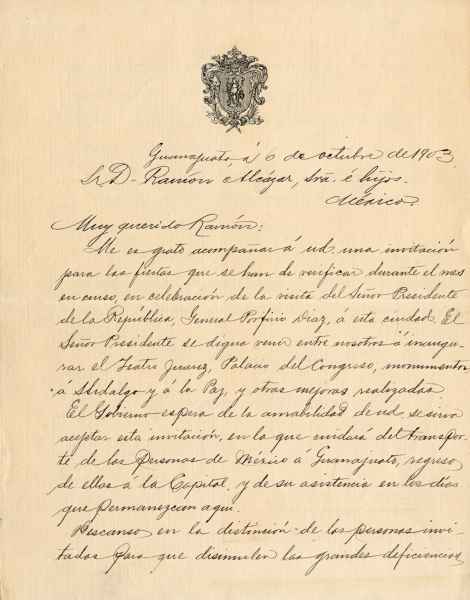 Guanajuato, á 6 de octubre de 1903.
Sr D. Ramón Alcázar, Sra. é hijos.
México.
Muy querido Ramón:
Me es grato acompañar á ud. una invitación
para las fiestas que se han de verificar durante el mes
en curso, en celebración de la visita del Señor Presidente
de la República, General Porfirio Diaz, á esta ciudad. El
Señor Presidente se digna venir entre nosotros á inaugu-
rar el Teatro Juarez, Palacio del Congreso, monumentos
á Hidalgo y á la Paz, y otras mejoras realizadas.
El Gobierno espera de la amabilidad de ud. se sirva
aceptar esta invitación, en la que cuidará del transpor-
te de las personas de México á Guanajuato, regreso
de ellas á la Capital, y de su asistencia en los días
que permanezcan aqui.
Descanso en la distinción de las personas invi-
tadas para que disimulen las grandes deficiencias